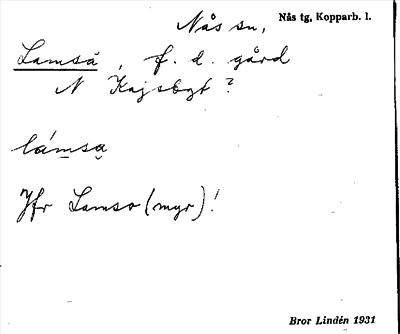 Nås sn, Nås tg, Kopparb. l.
Lamså, f. d. gård
N Kajsbyt?
lámsa
Jfr Lamso (myr)!
Bror Lindén 1931